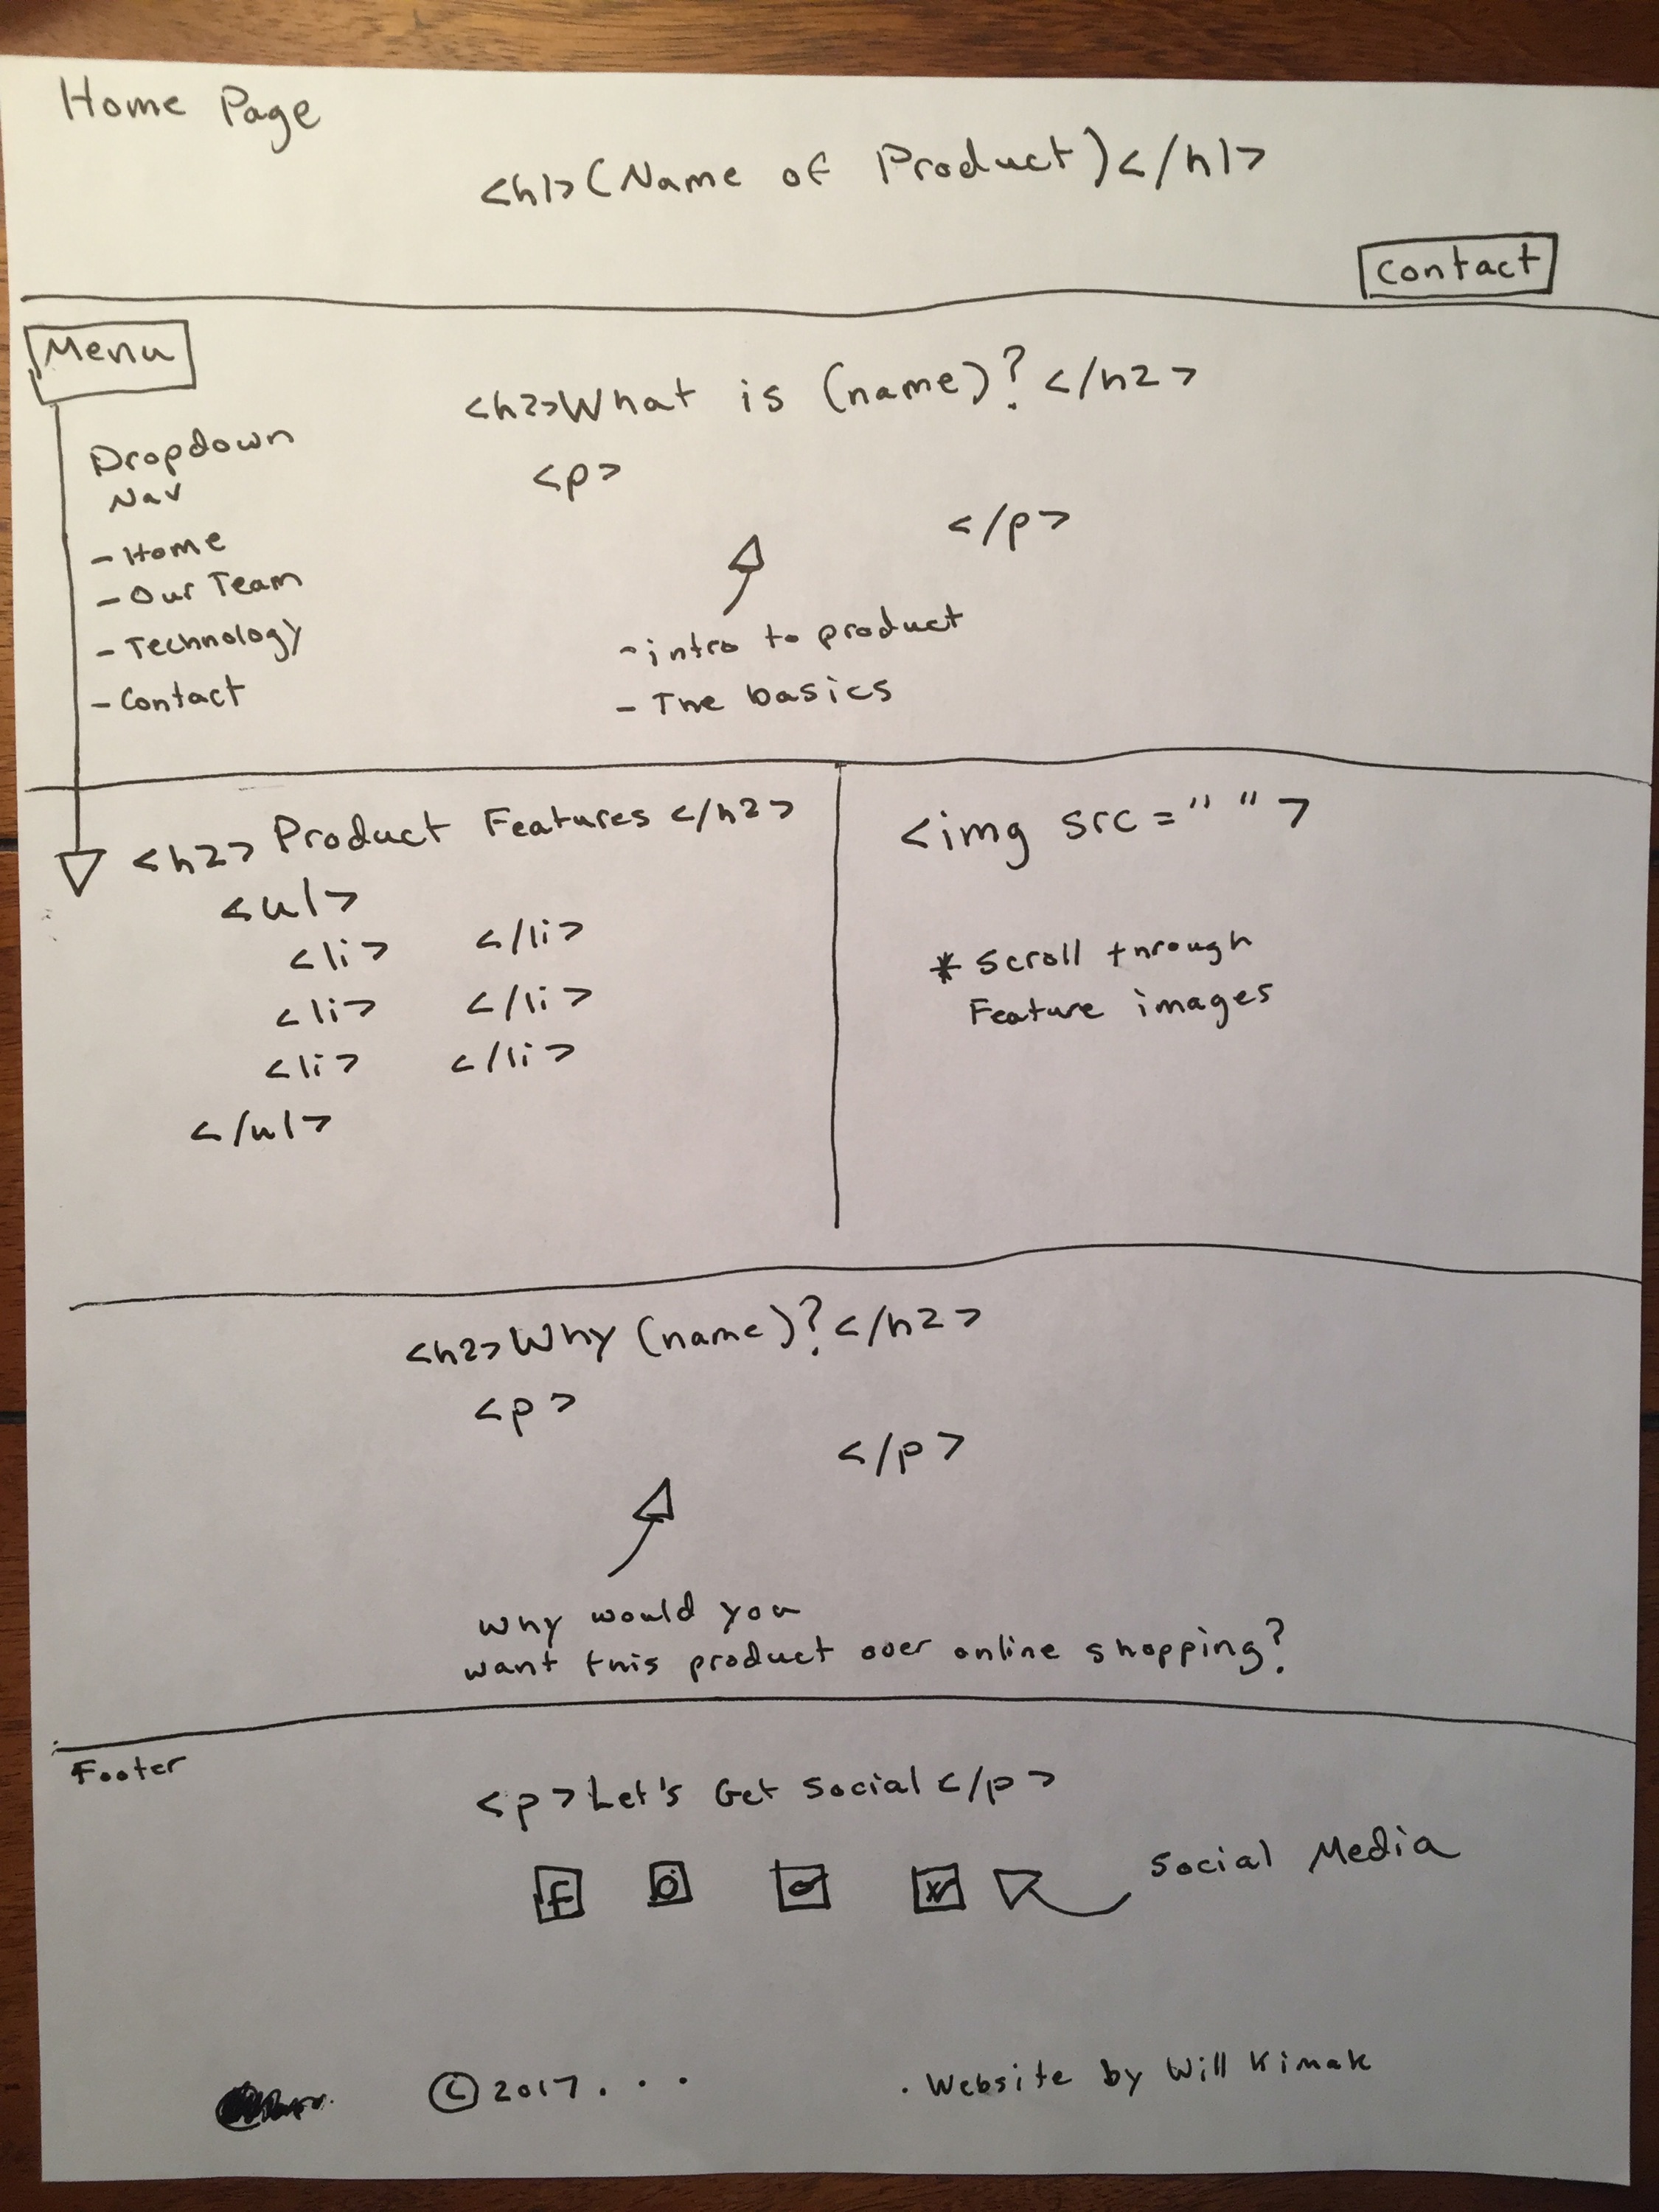 Home Page
<h1>(Name of Product)</h1>
Contact
Menu
Dropdown
Nav
- Home
- Our Team
- Technology
- Contact
<h2>What is (name)?</h2>
<p>
</p>
- intro to product
- The basics
<h2> Product Features </h2>
<ul>
<li> </li>
<li> </li>
<li> </li>
</ul>
<img src=" ">
* Scroll through
Feature images
<h2>Why (name)?</h2>
<p>
</p>
why would you
want this product over online shopping?
Footer
<p>Let's Get Social</p>
f
Social Media
© 2017. . .
. Website by Will Kimak